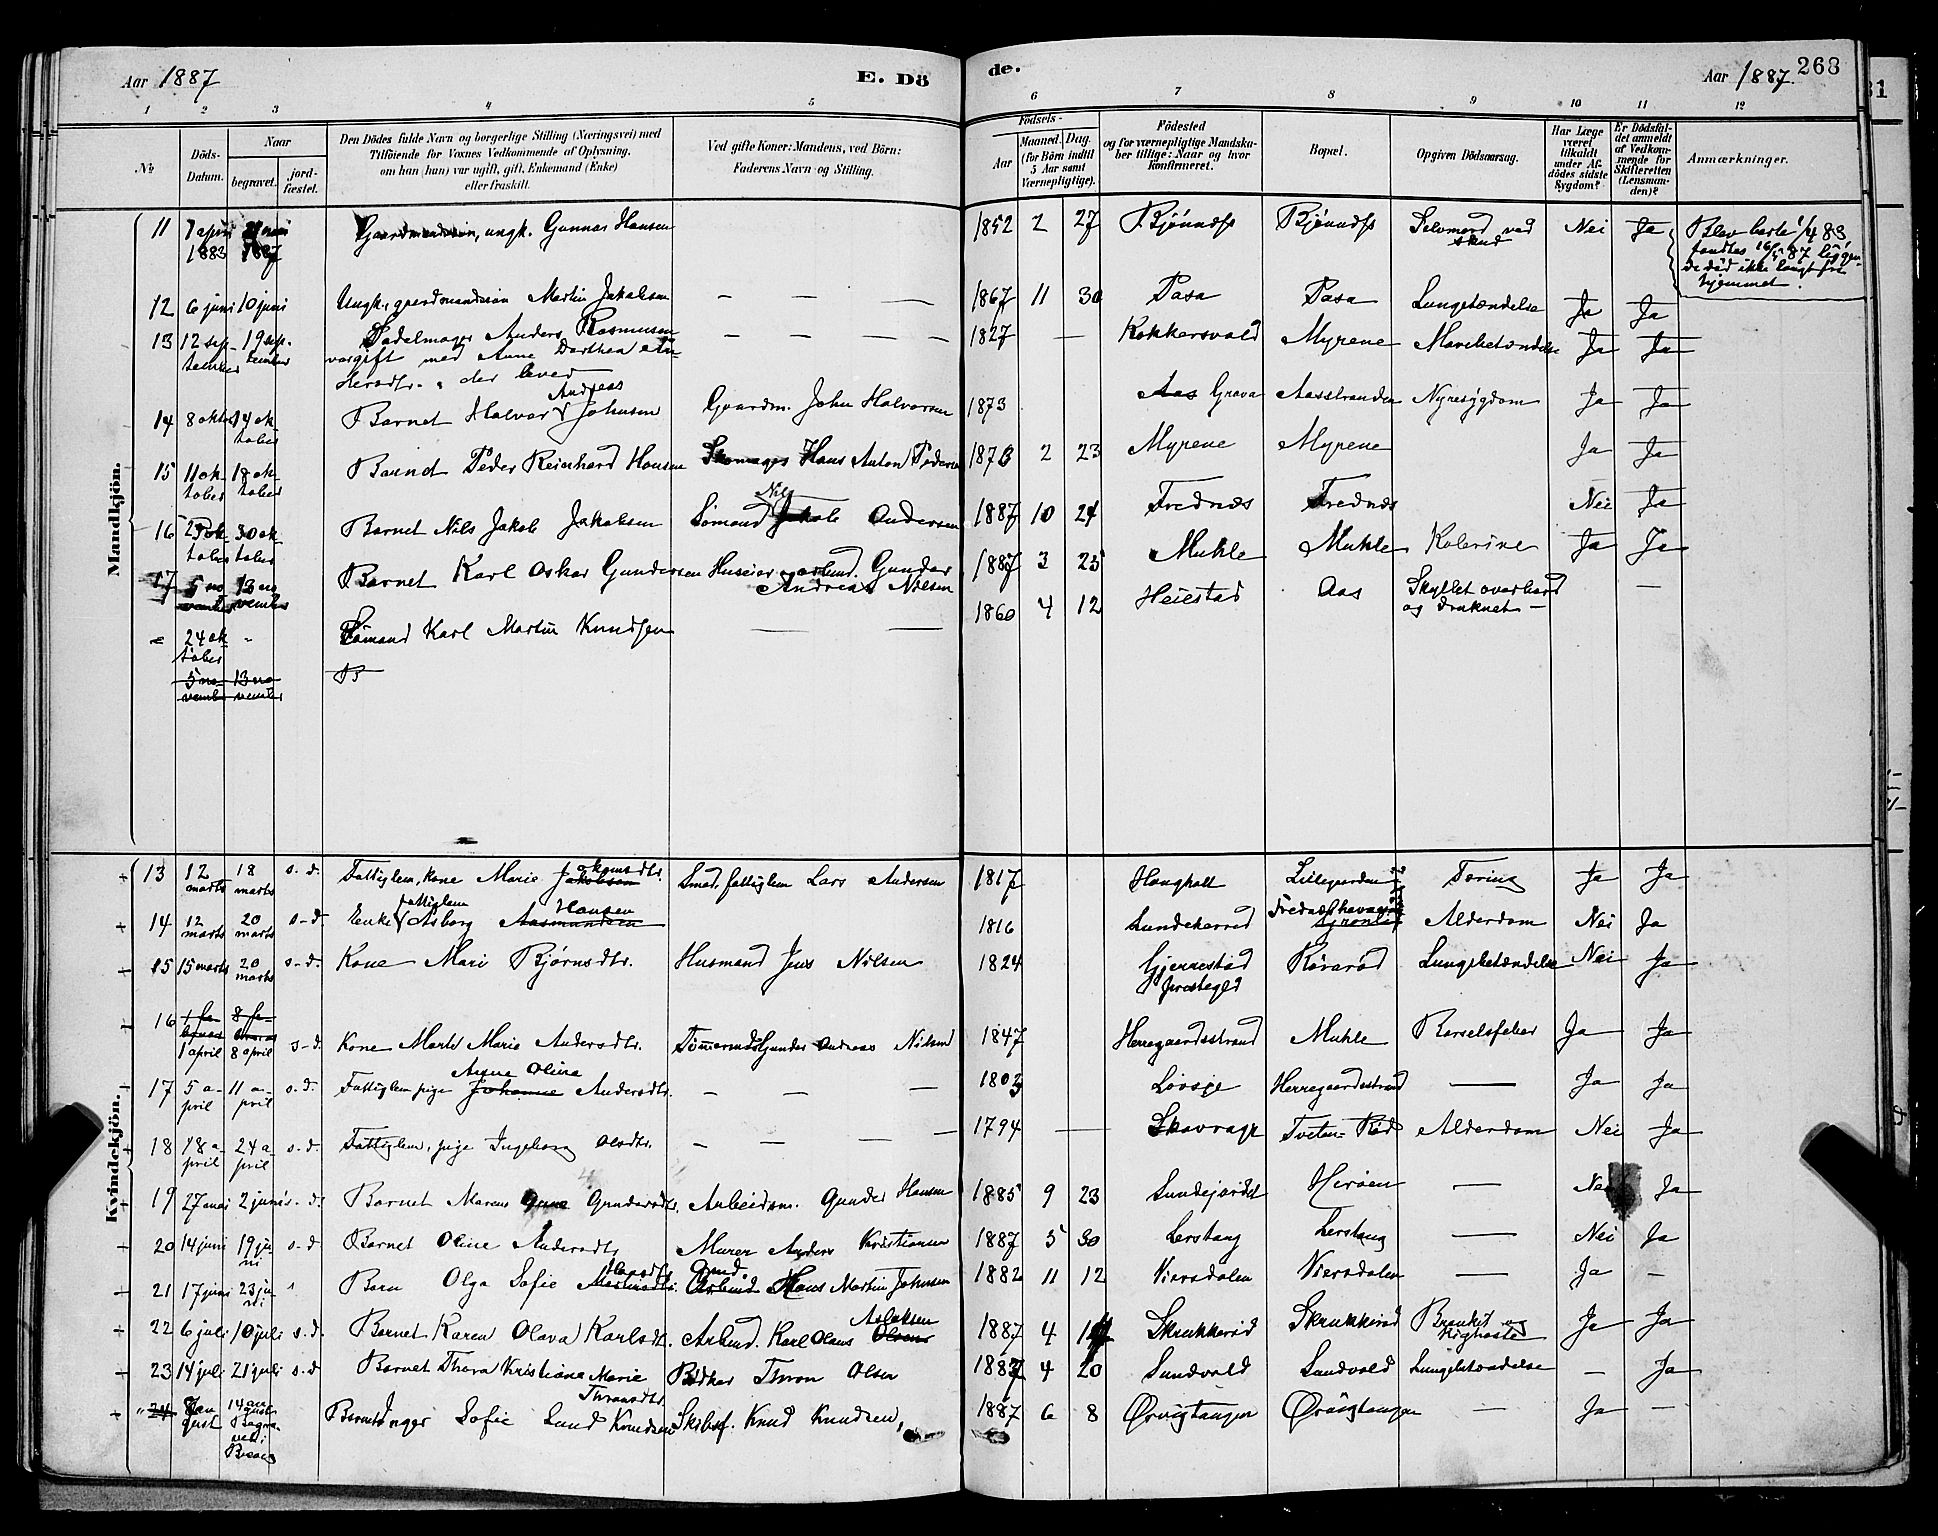 Aar 1887
E. Dö
de.
Aar 1887.
268
1 2 3 4 5 6 7 8 9 10 11 12
No
Döds-Datum.
Naar
begravet.
jordfæstet.
Den Dödes fulde Navn og borgerlige Stilling (Næringsvei) med
Tilföiende for Voxnes Vedkommende af Oplysning,
om han (hun) var ugift, gift, Enkemand (Enke)
eller fraskilt.
Ved gifte Koner: Mandens, ved Börn:
Faderens Navn og Stilling.
Födsels-
Aar
Maaned.
Dag.
(for Börn indtil
5 Aar samt
Værnepligtige).
Födested
og for værnepligtige Mandskaber tillige: Naar og hvor
konfirmeret.
Bopæl.
Opgiven Dödsaarsag.
Har Læge været tilkaldt under Afdödes sidste Sygdom?
Er Dödsfaldet anmeldt af Vedkommende for Skifteretten (Lensmanden)?
Anmærkninger.
Mandkjön.
11 7 april 1883 1887 ungk. Gunnar Hansen 1852 2 27 Bjönnæs Bjönnæs Selvmord ved skud Nei Ja
Blev borte 1/4 83
fandtes 16/5 87 liggende död ikke langt fra
hjemmet.
12 6 juni 10 juni Ungk., gaardmandssön Martin Jakobsen — — — 1867 11 30 Pasa Pasa Lungebetændelse Ja Ja
13 12 september 19 september Sadelmager Anders Rasmussen — — — 1827 — Kokkersvold Myrene Mavebetændelse Ja Ja
var gift med Anne Dorthea
der lever
14 8 oktober 14 oktober Barnet Halvor Andreas Johnsen Gaardm. John Halvorsen 1873 Aas Grava Aasstranden Nyresygdom Ja Ja
15 11 oktober 18 oktober Barnet Peder Reinhard Hansen Skomager Hans Anton Pedersen 1873 2 23 Myrene Myrene Ja Ja
16 oktober 30 oktober Barnet Nils Jakob Jakobsen Sömand Jakob Nils Andersen 1887 10 24 Frednæs Frednæs Nei Ja
17 5 november 13 november Barnet Karl Oskar Gundersen Huseier Gunder Andreas Nilsen 1887 3 25 Muhle Muhle Kolerine Ja Ja
24 oktober Sömand Karl Martin Knudsen — — 1860 4 12 Heiestad Aas Skyllet overbord og druknet — —
5 november 13 november B
Kvindekjön.
13 12 marts 18 marts s. d. Fattiglem, kone Marie Jakobsen Smed, fattiglem Lars Andersen 1817 Haugholt Lillegaarden Tæring Ja Ja
14 12 marts 20 marts s. d. Enke fattiglem Asborg Aasmundsen Hansen 1816 Lundekerred Alderdom Nei Ja
15 15 marts 20 marts s. d. Kone Mari Bjørnsdtr. Husmand Jens Nilsen 1824 Gjerrestad prestegjd Røraröd Lungebetændelse Nei Ja
16 1 april 8 april s. d. Kone Marte Marie Andersdtr. Tömmermd Gunder Andreas Nilsen 1847 Herregaardsstrand Muhle Barselsfeber Ja Ja
17 5 april 11 april s. d. Fattiglem pige Johanne Anne Oline Andersdtr. — — — 1803 Lövsje Herregaardsstrand — Ja Ja
18 18 april 24 april s. d. Fattiglem, pige Ingeborg Olsdtr. — — — 1794 — Skavrage Tveten-Röd Alderdom Nei Ja
19 27 mai 2 juni s. d. Barnet Maren Gundersdtr. Arbeidsm. Gunder Hansen 1885 9 23 Lundejordet Heröen — Nei Ja
20 14 juni 19 juni s. d. Barnet Oline Andersdtr Murer Anders Kristiansen 1887 5 30 Lerstang Lerstang — Nei Ja
21 17 juni 23 juni Barn Olga Sofie Hansdtr Hans Martin Johnsen 1882 11 12 Viersdalen Viersdalen — Ja —
22 6 juli 10 juli s. d. Barnet Karen Olava Karlsdt. Arbmd. Karl Olaus Olsens Aslaksen 1887 4 Skrukkeröd Skrukkeröd Bronkit og Kighoste Ja Ja
23 14 juli 21 juli s. d Barnet Thora Kristiane Marie Thronsdtr. Bödker Thron Olsen 1887 4 20 Sundvold Sundvold Lungebetændelse — Ja
24 august 14 august Barnet Inger Sofie Lund Knudsen Skibsf. Knud Knudsen, 1887 6 8 Ørvigtangen Ørvigtangen — Ja —